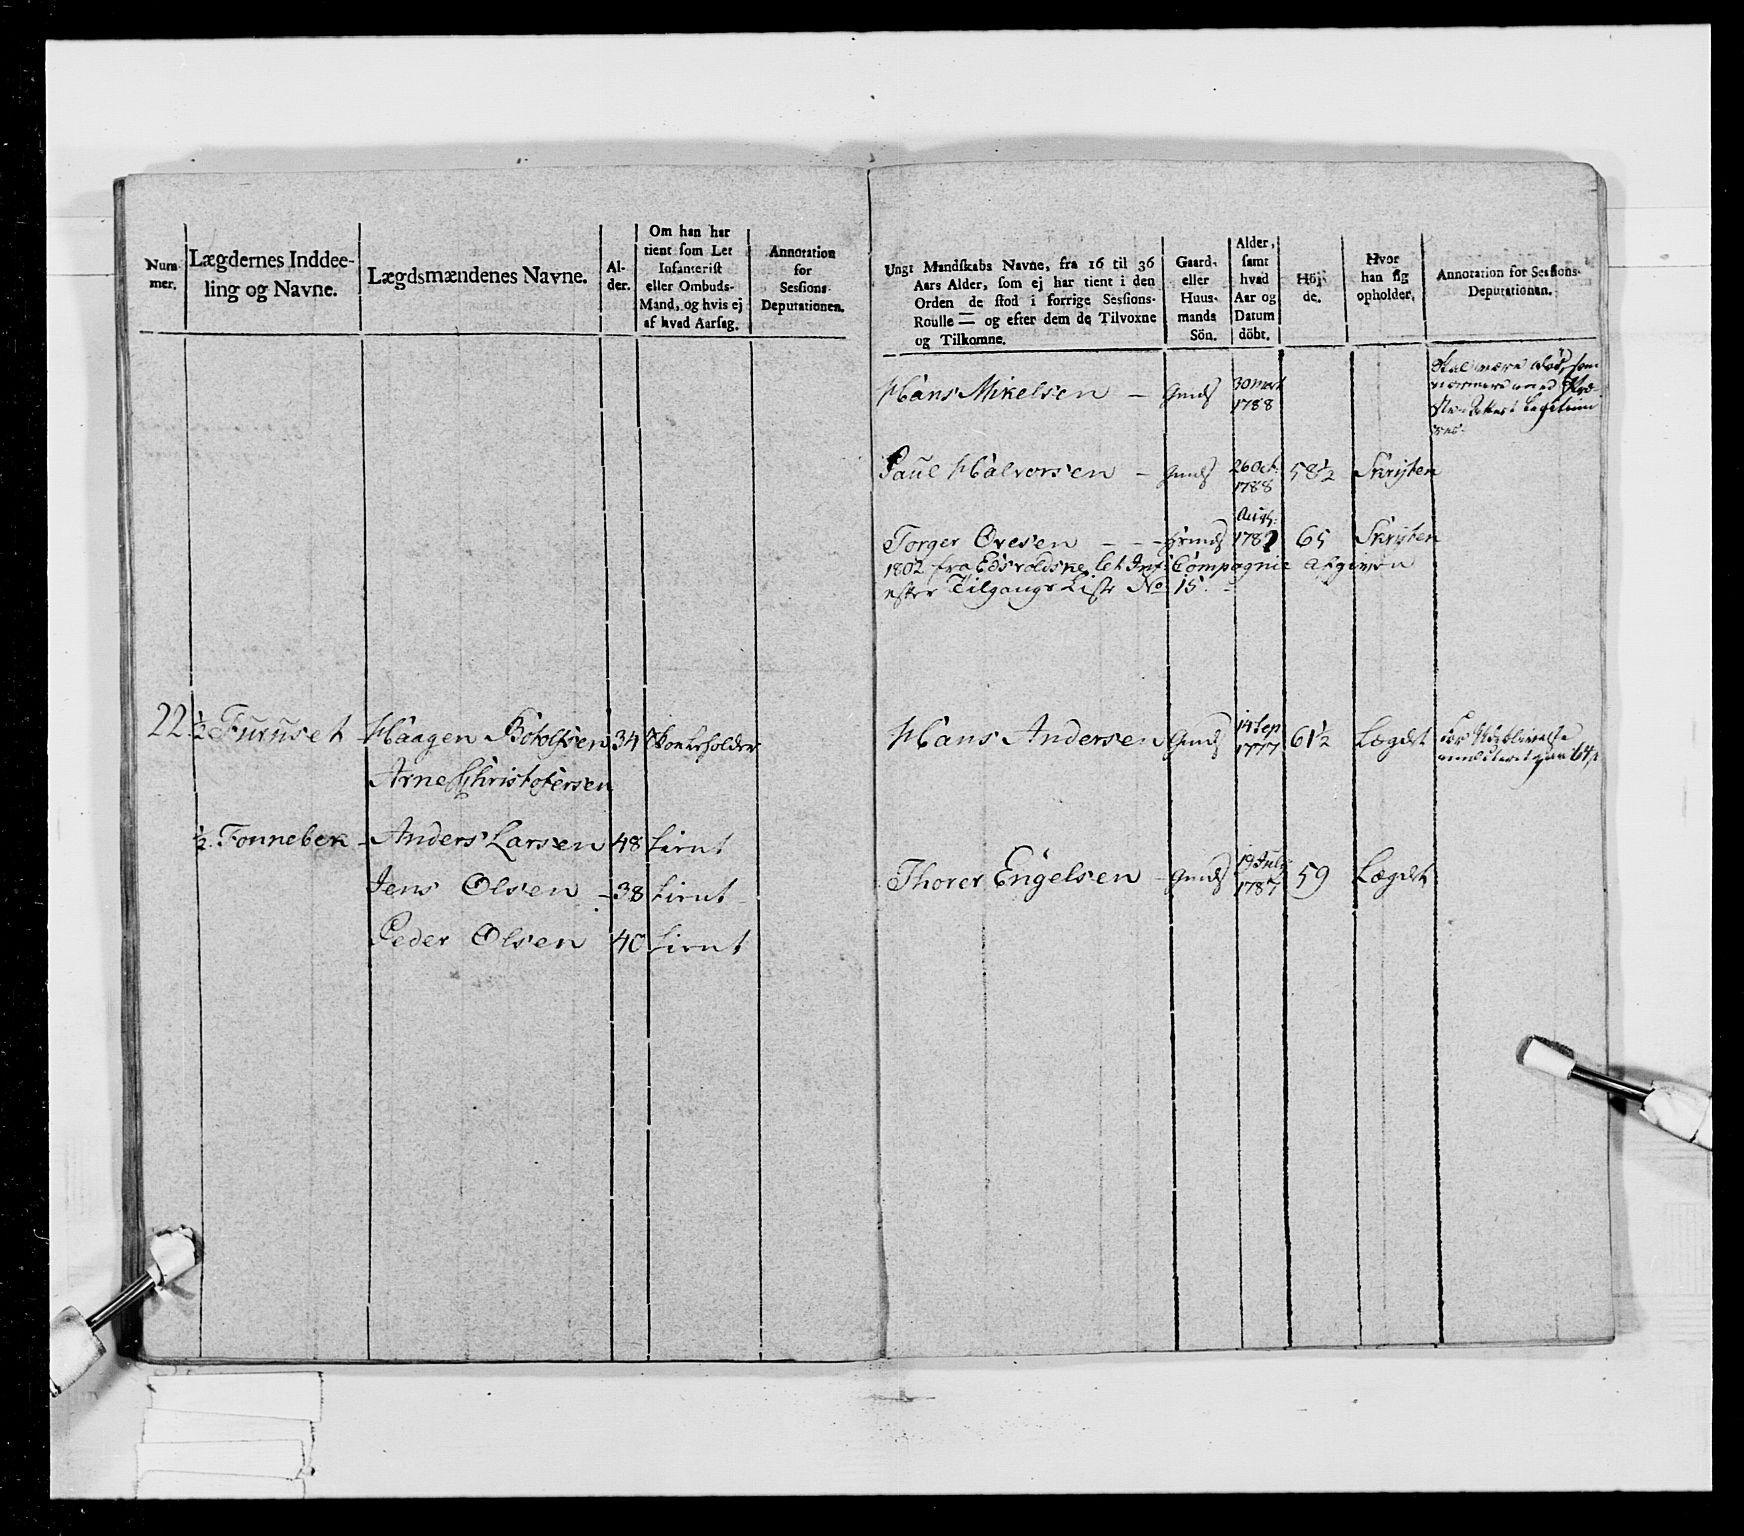 Num-
mer.
Lægdernes Inddee-
ling og Navne.
Lægdsmændenes Navne.
Al-
der.
Om han har
tient som Let
Infanterist
eller Ombuds-
Mand, og hvis ej
af hvad Aarsag.
Annotation
for
Sessions-
Deputationen.
22 ½ Furuset Haagen Botolfsen 34
Arne Christofersen
½ Fonnebek Anders Larsen 48 tient
Jens Olsen 38 tient
Peder Olsen 40 tient
Ungt Mandskabs Navne, fra 16 til 36
Aars Alder, som ej har tient i den
Orden de stod i forrige Sessions-
Roulle = og efter dem de Tilvoxne
og Tilkomne.
Gaard-
eller
Huus-
mands
Sön.
Alder,
samt
hvad
Aar og
Datum
döbt.
Höj-
de.
Hvor
han sig
opholder.
Annotation for Sessions-
Deputationen.
Hans Mikelsen — Gmds 30 Mart
1788
Skal være död, som
Paul Halvorsen — Gmds 26 Oct:
1788 58½ Skrijten
Torger Ovesen — Aug:
178 65 Skrijten
1802 fra Edsvoldske let Inf: Compagnie afgiven
efter Tilgangs Liste No 15.
Hans Andersen Gmds 14 Sep
1777 61½ Lægdet
Thorer Engelsen Gmds 19 July
1787 59 Lægdet